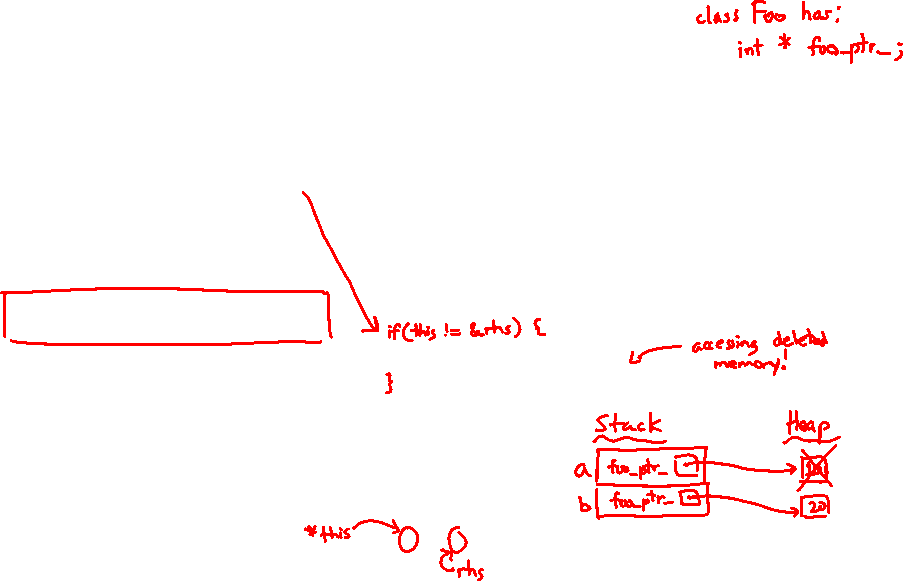 class Foo has:
int * foo_ptr_;
if(this != &rhs) {
}
accessing deleted
memory!
Stack
Heap
a foo_ptr_
b foo_ptr_ 20
*this
rhs